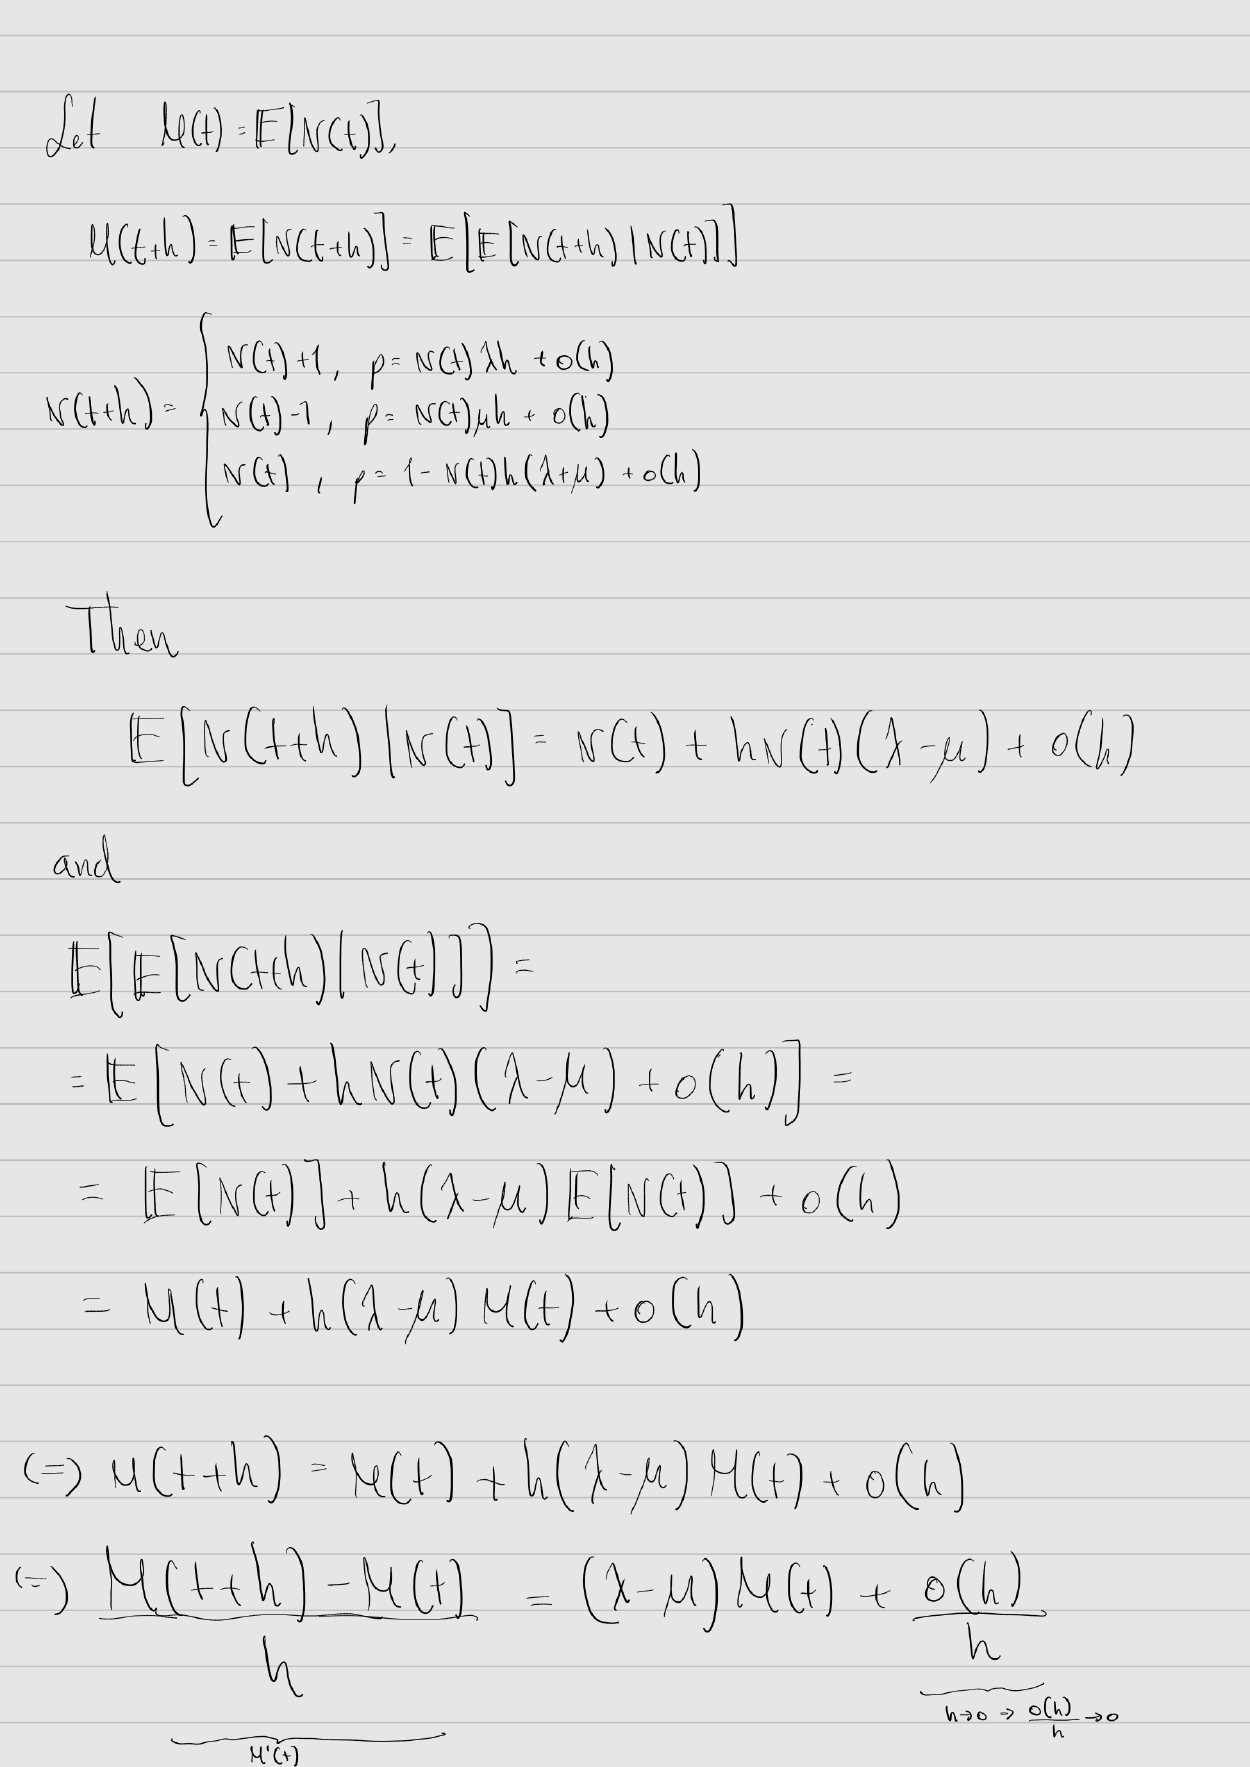 Let M(t) = E[N(t)],
M(t+h) = E[N(t+h)] = E[E[N(t+h) | N(t)]]
N(t+h) = {
N(t)+1, p = N(t)λh + o(h)
N(t)-1, p = N(t)μh + o(h)
N(t), p = 1 - N(t)h(λ+μ) + o(h)
Then
E[N(t+h) | N(t)] = N(t) + hN(t)(λ-μ) + o(h)
and
E[E[N(t+h) | N(t)]] =
= E[N(t) + hN(t)(λ-μ) + o(h)] =
= E[N(t)] + h(λ-μ)E[N(t)] + o(h)
= M(t) + h(λ-μ)M(t) + o(h)
(=) M(t+h) = M(t) + h(λ-μ)M(t) + o(h)
(=) (M(t+h) - M(t))/h = (λ-μ)M(t) + o(h)/h
h→0 ⇒ o(h)/h →0
M'(t)